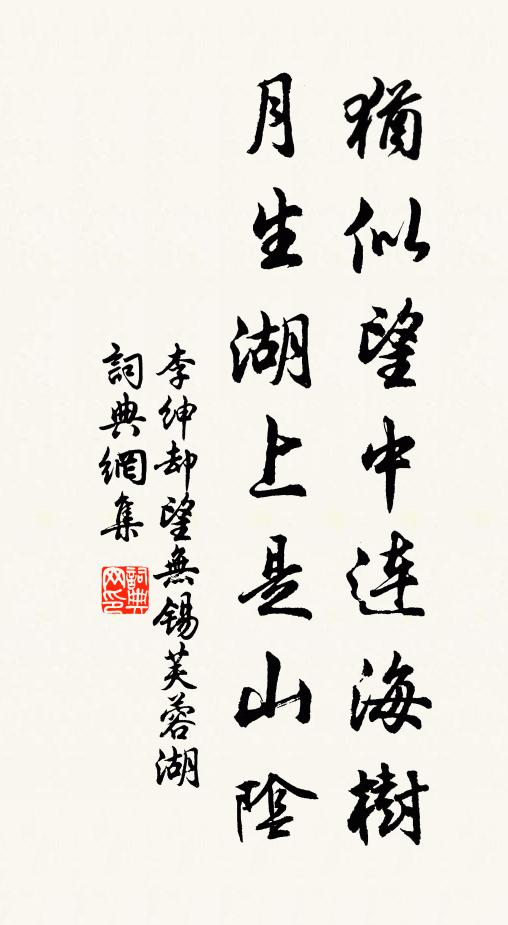 猶似望中連海樹
月生湖上是山陰
李紳却望無錫芙蓉湖
詞典網集
詞典網印